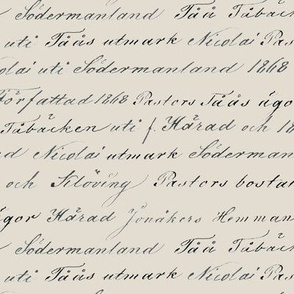 Södermanland Tåå Tåbäcken
uti Tåås utmark Nicolai Pas
olai uti Södermanland 1868
författad 1868 Pastors Tåås ägo
Tåbäcken uti f. Härad och 18
nd Nicolai utmark Söderman
och Klöving Pastors bostad
ägor Härad Jonåkers Hemman
Södermanland Tåå Tåbäcken
uti Tåås utmark Nicolai Pas